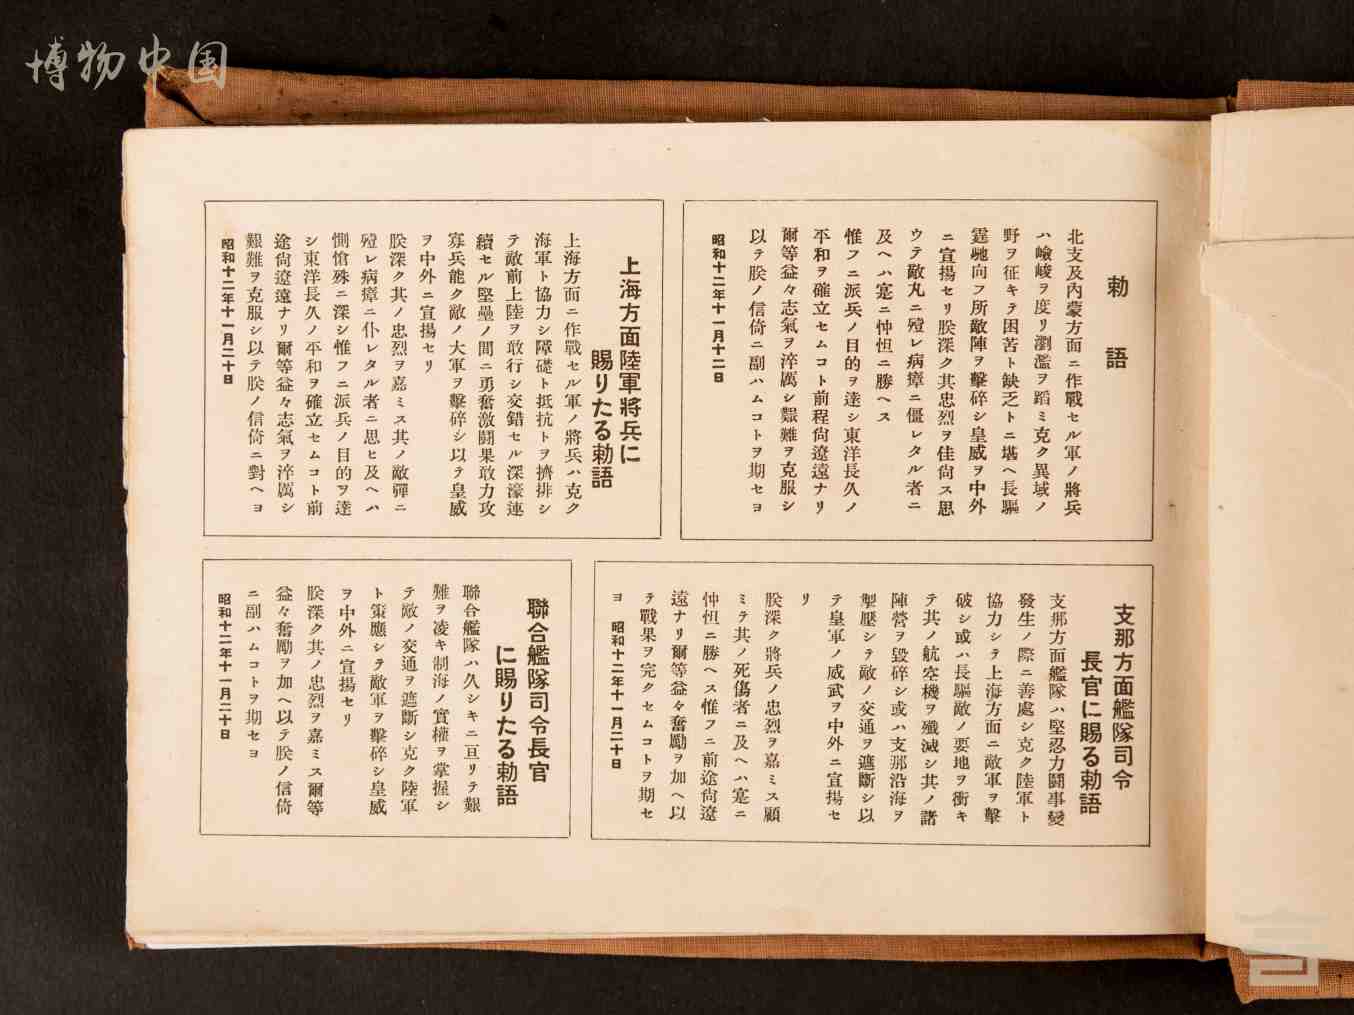 博物中国
勅語
北支及內蒙方面ニ作戰セル軍ノ將兵
ハ嶮峻ヲ度リ瀏濫ヲ蹈ミ克ク異域ノ
野ヲ征キテ困苦ト缺乏トニ堪ヘ長驅
霆馳向フ所敵陣ヲ擊碎シ皇威ヲ中外
ニ宣揚セリ朕深ク其忠烈ヲ佳尙ス思
ウテ敵丸ニ殪レ病瘴ニ僵レタル者ニ
及ヘハ寔ニ忡怛ニ勝ヘス
惟フニ派兵ノ目的ヲ達シ東洋長久ノ
平和ヲ確立セムコト前程尙遼遠ナリ
爾等益々志氣ヲ淬厲シ艱難ヲ克服シ
以テ朕ノ信倚ニ副ハムコトヲ期セヨ
昭和十二年十一月十二日
上海方面陸軍將兵に
賜りたる勅語
上海方面ニ作戰セル軍ノ將兵ハ克ク
海軍ト協力シ障礎ト抵抗トヲ擠排シ
テ敵前上陸ヲ敢行シ交錯セル深濠連
續セル堅壘ノ間ニ勇奮激鬪果敢力攻
寡兵能ク敵ノ大軍ヲ擊碎シ以テ皇威
ヲ中外ニ宣揚セリ
朕深ク其ノ忠烈ヲ嘉ミス其ノ敵彈ニ
殪レ病瘴ニ仆レタル者ニ思ヒ及ヘハ
惻愴殊ニ深シ惟フニ派兵ノ目的ヲ達
シ東洋長久ノ平和ヲ確立セムコト前
途尙遼遠ナリ爾等益々志氣ヲ淬厲シ
艱難ヲ克服シ以テ朕ノ信倚ニ對ヘヨ
昭和十二年十一月二十日
支那方面艦隊司令
長官に賜る勅語
支那方面艦隊ハ堅忍力鬪事變
發生ノ際ニ善處シ克ク陸軍ト
協力シテ上海方面ニ敵軍ヲ擊
破シ或ハ長驅敵ノ要地ヲ衝キ
テ其ノ航空機ヲ殲滅シ其ノ諸
陣營ヲ毀碎シ或ハ支那沿海ヲ
掣壓シテ敵ノ交通ヲ遮斷シ以
テ皇軍ノ威武ヲ中外ニ宣揚セ
リ
朕深ク將兵ノ忠烈ヲ嘉ミス顧
ミテ其ノ死傷者ニ及ヘハ寔ニ
忡怛ニ勝ヘス惟フニ前途尙遼
遠ナリ爾等益々奮勵ヲ加ヘ以
テ戰果ヲ完クセムコトヲ期セ
ヨ
昭和十二年十一月二十日
聯合艦隊司令長官
に賜りたる勅語
聯合艦隊ハ久シキニ亘リテ艱
難ヲ凌キ制海ノ實權ヲ掌握シ
テ敵ノ交通ヲ遮斷シ克ク陸軍
ト策應シテ敵軍ヲ擊碎シ皇威
ヲ中外ニ宣揚セリ
朕深ク其ノ忠烈ヲ嘉ミス爾等
益々奮勵ヲ加ヘ以テ朕ノ信倚
ニ副ハムコトヲ期セヨ
昭和十二年十一月二十日